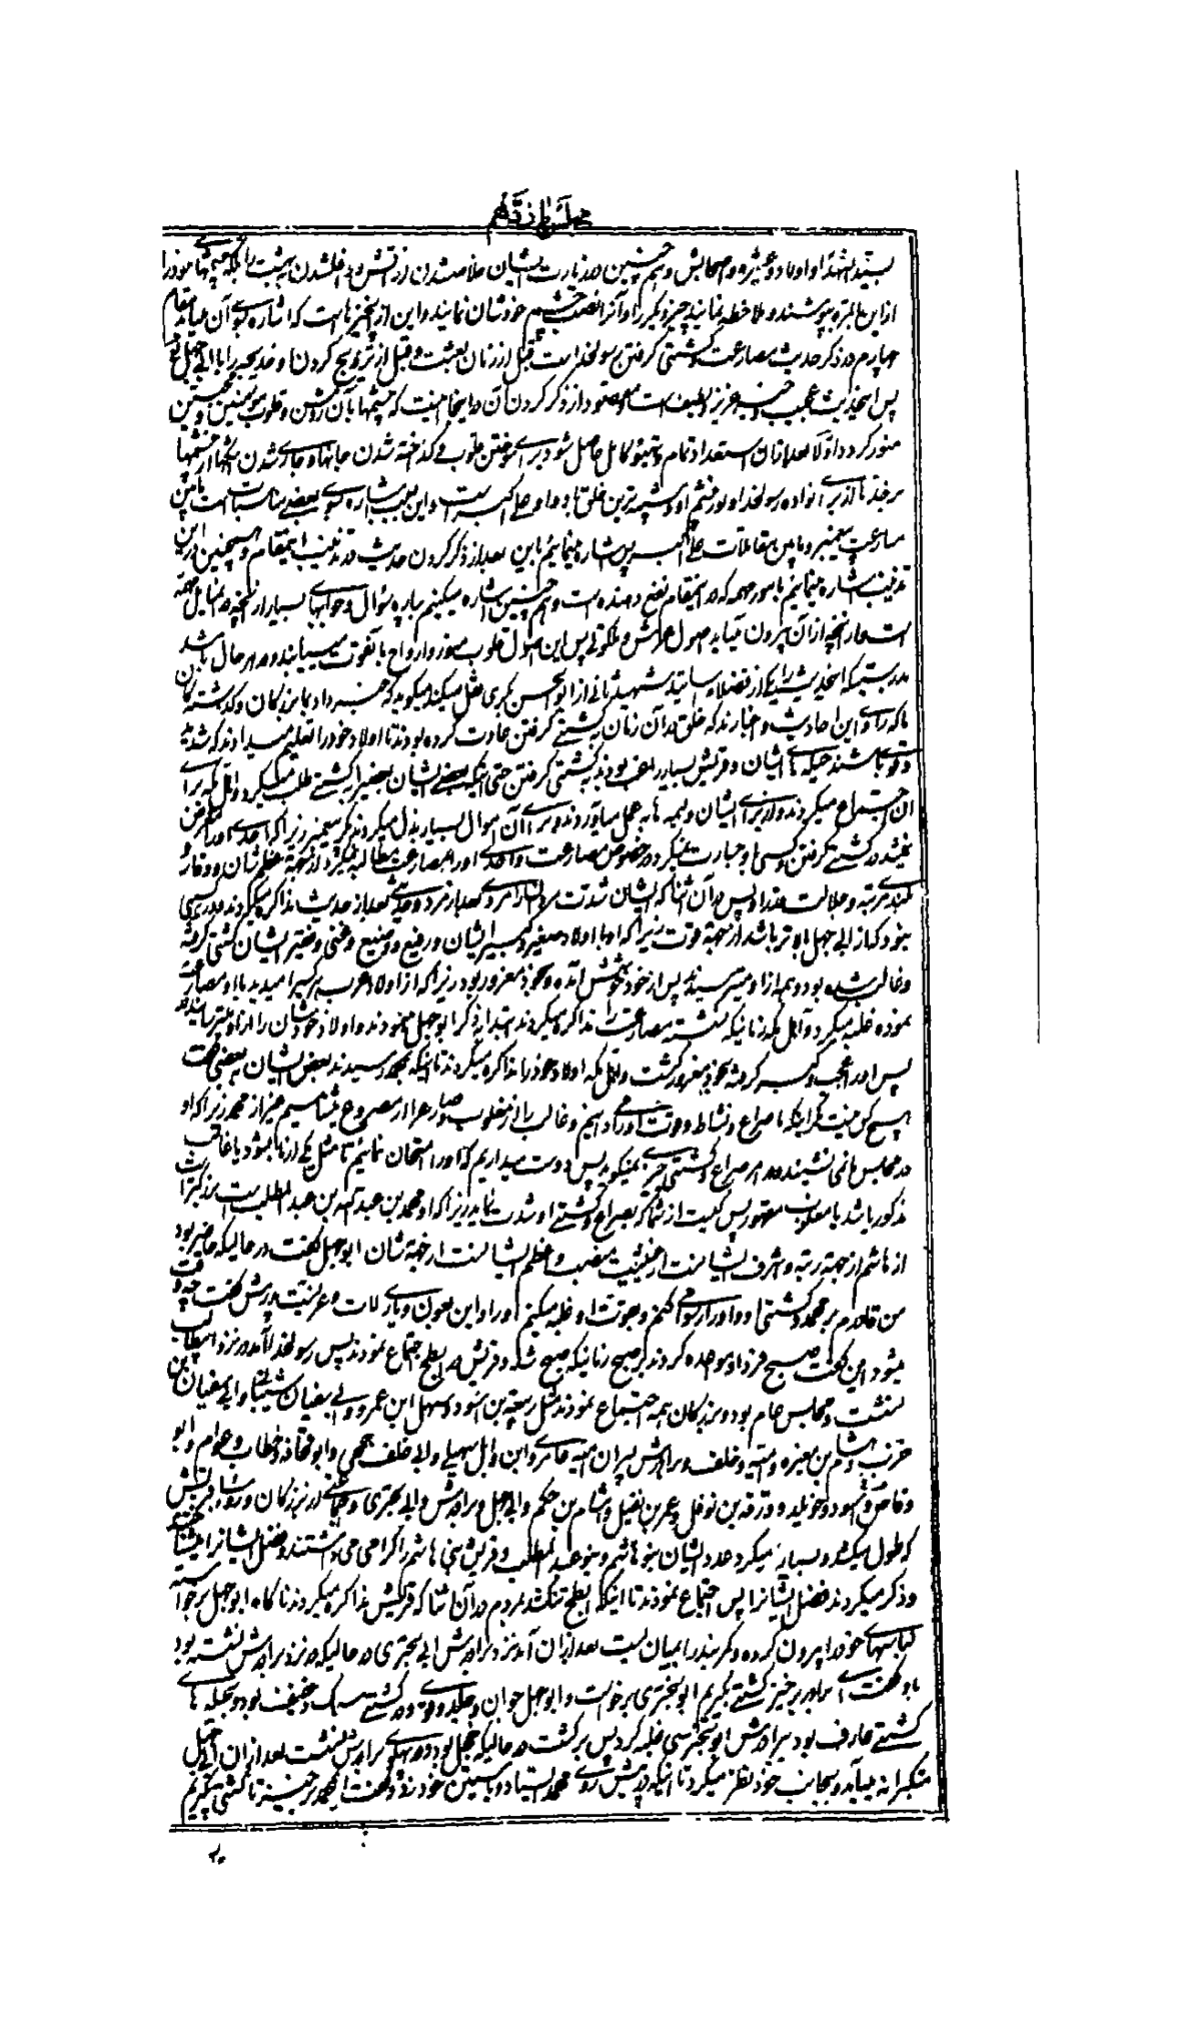 مجلس شانزدهم
بسید الشهدا و اولاد و عشیره و اصحابش و هم چنین در زیارت ایشان خلاص شدن از آتش و داخل شدن بهشت را بلکه چشمهای خود را
از این بالمره بپوشند و ملاحظه نمایند چیز دیگر را و آنرا نصب چشم خودشان نمایند و این از چیزهاست که اشاره بسوی آن میآید مقام
چهارم در ذکر حدیث مصارعت و کشتی گرفتن رسولخدا است قبل از زمان بعثت و قبل از تزویج کردن او خدیجه را با ابی جهل
پس این حدیث عجیب و عزیز و لطیف است و مقصود از ذکر کردن آن در اینجا اینست که چشمها بآن روشن و قلوب مؤمنین و محبین
منور گردد اولا بعد از آن استعداد تمام و تهیؤ کامل حاصل شود برای سوختن قلوب و گداخته شدن جانها و جاری شدن اشکها از چشمها
بر خانواده رسولخدا و نور چشم او و شبیه ترین خلق باو علی اکبر است و این بسبب اشاره بسوی بعضی مناسبات است مابین
مصارعت پیغمبر و مابین مقاتلات علی اکبر پس اشاره مینمائیم باین بعد از ذکر کردن حدیث در تذنیب اینمقام و همچنین در این
تذنیب اشاره مینمائیم بامور مهمه که در اینمقام نفع دهنده است و هم چنین اشاره میکنیم بپاره سؤال و جوابهای بسیار از آنچه در مقابل
است از آنچه از آن بیرون میآید اصول عرشی و ملکوتی پس باین اصول قلوب میسوزد و ارواح با قوت میباشد و در هر حال
بدرستیکه این حدیث را یکی از فضلاء اساتید شهید ثانی از ابو الحسن بکری نقل میکند میگوید که خبر داد ما را بزرگان و گذشتگان
ما که راوی این احادیث و اخبارند که خلق در آن زمان بکشتی گرفتن عادت کرده بودند تا اولاد خود را تعلیم میدادند که شدید
و قوی باشند حیله های ایشان و قریش بسیار راغب بودند بکشتی گرفتن حتی اینکه بعضی ایشان بعضی را بکشتی طلب میکرد و اهل مکه برای
آن اجتماع میکردند و از برای ایشان ولیمه ها بعمل میآوردند و برای آن اموال بسیار بذل میکردند مگر پیغمبر زیرا که احدی او را متعرض
نمیشد در کشتی گرفتن و کسی باو جسارت نمیکرد در خصوص مصارعت و احدی او را بمصارعت مطالبه نمیکرد از جهة عظم شأن و وقار و
بلندی مرتبه و جلالت قدر او پس در آن اثنا که ایشان شدت مردان را مردی بعد از مردی و حدیثی بعد از حدیث مذاکره میکردند در میان کسی
نبود که از ابی جهل باقوتر باشد از جهة قوت زیرا که او با اولاد صغیر و کبیر ایشان و رفیع و وضیع و غنی و فقیر ایشان کشتی گرفته
و غالب شده بود و همه از او میترسیدند پس از خود خوشش آمده و بخود مغرور بود زیرا که از اولاد عرب هر کس را میدید با او مصارعت
نموده غلبه میکرد و اهل مکه زمانیکه نشسته مصارعت را مذاکره میکردند ابتدا بذکر ابوجهل مینمودند و اولاد خودشان را از او میترسانیدند
پس او را عجب و کبر گرفته بخود مغرور گشت و اهل مکه اولاد خود را مذاکره میکردند تا اینکه بمحمد رسیدند بعض ایشان ببعضی گفت
هیچ کس نیست مگر اینکه ما صراع و نشاط و قوت او را میدانیم و غالب را از مغلوب و صارع را از مصروع میشناسیم غیر از محمد زیرا که او
در مجالس ما نمی نشیند و در امر صراع و کشتی چیزی نمیگوید پس دوست میداریم که او را امتحان نمائیم تا مثل یکی از ما بشود یا غالب
مذکور باشد یا مغلوب مقهور پس کیست از شما که بصراع و کشتی او شدت نماید زیرا که او محمد بن عبد الله بن عبد المطلب است بزرگتر است
از هاشم از جهة رتبه و شرف ایشانست از حیثیت منصب و اعظم ایشانست از جهة شأن ابوجهل گفت در حالیکه حاضر بود
من قادرم بر محمد و کشتی او و او را رسوا میکنم و بقوت او غلبه میکنم و او را و این بعون و یاری لات و عزی است پدرش گفت چه وقت
میشود این گفت صبح فردا و موعده کردند بر صبح زمانیکه صبح شد و قریش در ابطح اجتماع نمودند پس رسولخدا آمد و در نزد ابیطالب
نشست و مجلس عام بود و بزرگان همه اجتماع نمودند مثل ربیعة بن اسود و سهل ابن عمرو و ابی سفیان شیبانی و ابی سفیان بن
حرب و هشام بن مغیره و امیه و خلف و برادرش پسران امیه عامری و ابن وایل سهمی و ابی خلف جمحی و ابو قحافه و خطاب و عوام و ابو
وقاص و اسود و خویلد و ورقة بن نوفل و عمر بن نفیل و هشام بن حکم و ابی جهل و برادرش و ابی بختری و جماعتی از بزرگان و رؤساء قریش
که طول میکشد و بسیار میکرد عدد ایشان بنو هاشم و بنو عبد المطلب و قریش بنی هاشم را گرامی می داشتند و فضل ایشانرا میشناختند
و ذکر میکردند فضل ایشانرا پس اجتماع نمودند تا اینکه ابطح تنگ شد بمردم در آن اثنا که قریش مذاکره میکردند ناگاه ابوجهل برخواسته
لباسهای خود را بیرون کرده و کمربند را بمیان بست بعد از آن آمد نزد برادرش ابی بختری در حالیکه در نزد برادرش نشسته بود
باو گفت ای برادر برخیز کشتی بگیریم ابو بختری برخواست و ابوجهل جوان و جلد و قوی و در کشتی سبک و خفیف بود و بحیله های
کشتی عارف بود ببرادرش ابو بختری غلبه کرد پس برگشت در حالیکه خجل بود و در پهلوی برادرش نشست بعد از آن ابی جهل
متکبرانه میآمد و بجانب خود نظر میکرد تا اینکه در پیش روی محمد ایستاد و باستین خود زد و گفت ای محمد برخیز تا کشتی بگیریم